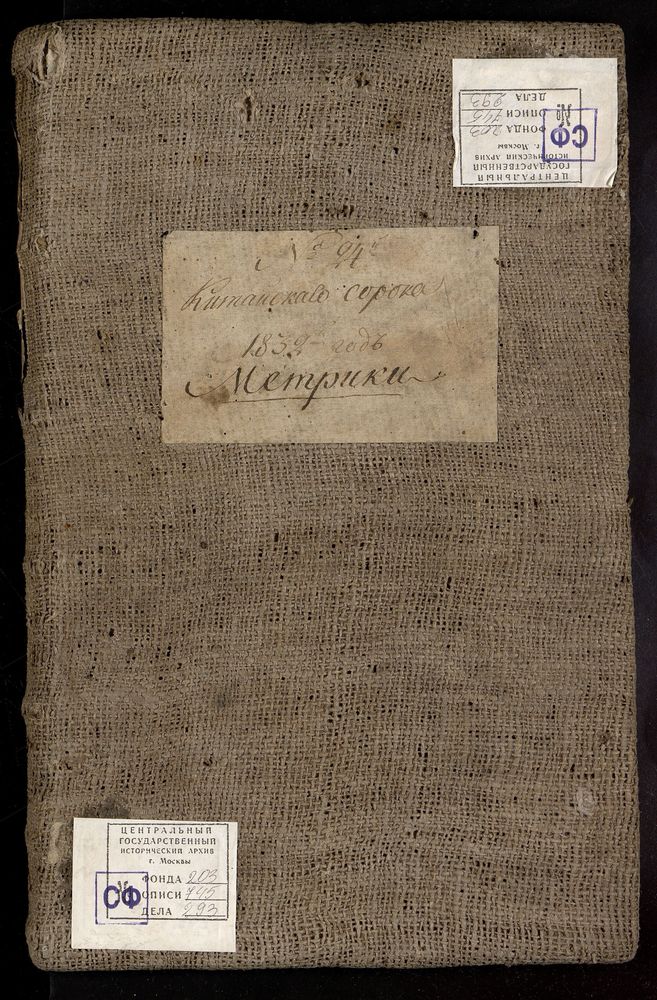 ЦЕНТРАЛЬНЫЙ
ГОСУДАРСТВЕННЫЙ
ИСТОРИЧЕСКИЙ АРХИВ
г. Москвы
№
ФОНДА 203
ОПИСИ 745
ДЕЛА 293
СФ
№ 24й
Китайскаго сорока
1832 годъ
Метрики
ЦЕНТРАЛЬНЫЙ
ГОСУДАРСТВЕННЫЙ
ИСТОРИЧЕСКИЙ АРХИВ
г. Москвы
№
ФОНДА 203
ОПИСИ 745
ДЕЛА 293
СФ